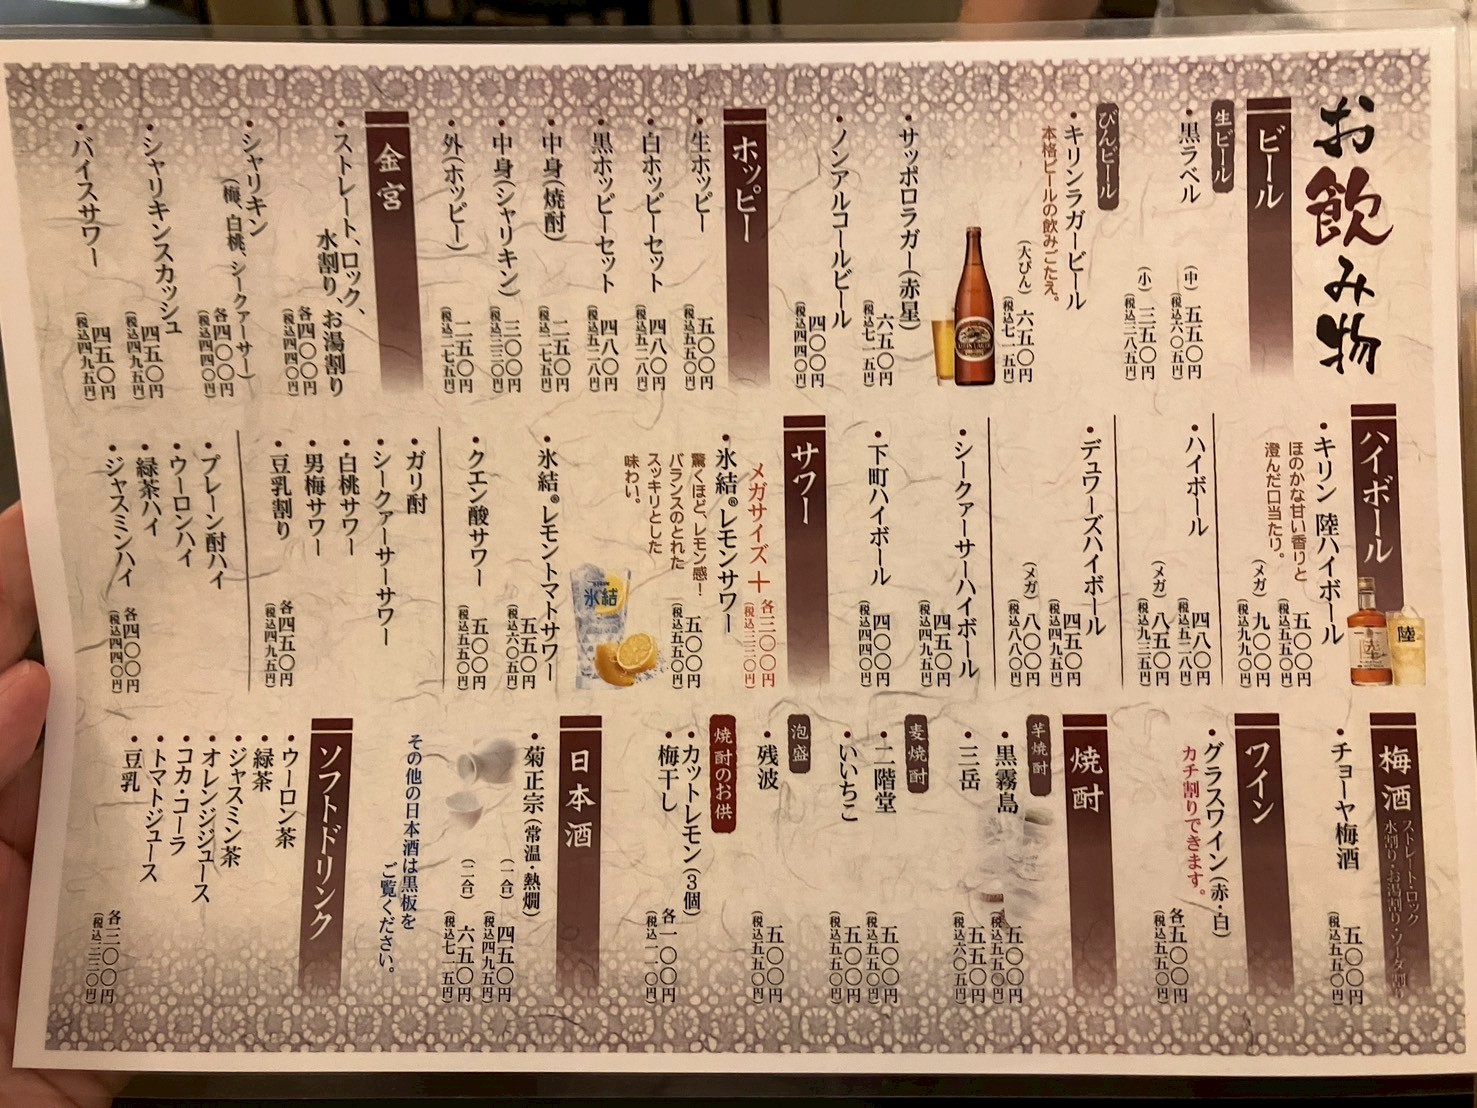 お飲み物
ビール
生ビール
・黒ラベル
(中) 五五〇円
(税込六〇五円)
(小) 三五〇円
(税込三八五円)
びんビール
・キリンラガービール
本格ビールの飲みごたえ。
(大びん) 六五〇円
(税込七一五円)
・サッポロラガー(赤星)
六五〇円
(税込七一五円)
・ノンアルコールビール
四〇〇円
(税込四四〇円)
ホッピー
・生ホッピー
五〇〇円
(税込五五〇円)
・白ホッピーセット
四八〇円
(税込五二八円)
・黒ホッピーセット
四八〇円
(税込五二八円)
・中身(焼酎)
二五〇円
(税込二七五円)
・中身(シャリキン)
三〇〇円
(税込三三〇円)
・外(ホッピー)
二五〇円
(税込二七五円)
金宮
・ストレート、ロック、
水割り、お湯割り
各四〇〇円
(税込四四〇円)
・シャリキン
(梅、白桃、シークァーサー)
各四〇〇円
(税込四四〇円)
・シャリキンスカッシュ
四五〇円
(税込四九五円)
・バイスサワー
四五〇円
(税込四九五円)
ハイボール
・キリン 陸ハイボール
ほのかな甘い香りと
澄んだ口当たり。
五〇〇円
(税込五五〇円)
(メガ) 九〇〇円
(税込九九〇円)
陸
・ハイボール
四八〇円
(税込五二八円)
(メガ) 八五〇円
(税込九三五円)
・デュワーズハイボール
四五〇円
(税込四九五円)
(メガ) 八〇〇円
(税込八八〇円)
・シークァーサーハイボール
四五〇円
(税込四九五円)
・下町ハイボール
四〇〇円
(税込四四〇円)
サワー
メガサイズ+各三〇〇円
(税込三三〇円)
・氷結®レモンサワー
驚くほど、レモン感!
バランスのとれた
スッキリとした
味わい。
五〇〇円
(税込五五〇円)
氷結
・氷結®レモントマトサワー
五五〇円
(税込六〇五円)
・クエン酸サワー
五〇〇円
(税込五五〇円)
・ガリ酎
・シークァーサーサワー
・白桃サワー
・男梅サワー
・豆乳割り
各四五〇円
(税込四九五円)
・プレーン酎ハイ
・ウーロンハイ
・緑茶ハイ
・ジャスミンハイ
各四〇〇円
(税込四四〇円)
梅酒
ストレート・ロック
水割り・お湯割り・ソーダ割り
・チョーヤ梅酒
五〇〇円
(税込五五〇円)
ワイン
・グラスワイン(赤・白)
カチ割りできます。
各五〇〇円
(税込五五〇円)
焼酎
芋焼酎
・黒霧島
五〇〇円
(税込五五〇円)
・三岳
五五〇円
(税込六〇五円)
麦焼酎
・二階堂
五〇〇円
(税込五五〇円)
・いいちこ
五〇〇円
(税込五五〇円)
泡盛
・残波
五〇〇円
(税込五五〇円)
焼酎のお供
・カットレモン(3個)
・梅干し
各一〇〇円
(税込一一〇円)
日本酒
・菊正宗(常温・熱燗)
(一合) 四五〇円
(税込四九五円)
(二合) 六五〇円
(税込七一五円)
その他の日本酒は黒板を
ご覧ください。
ソフトドリンク
・ウーロン茶
・緑茶
・ジャスミン茶
・オレンジジュース
・コカ・コーラ
・トマトジュース
・豆乳
各三〇〇円
(税込三三〇円)